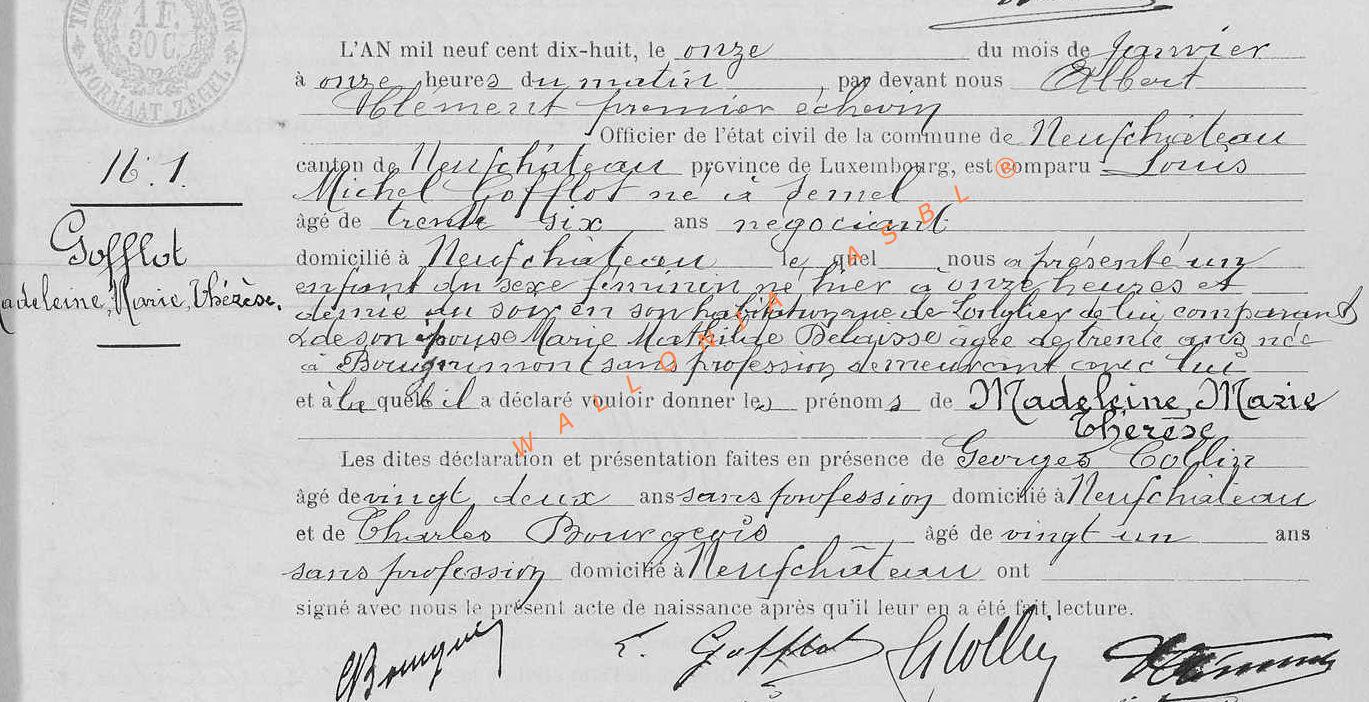 1 F.
30 C.
FORMAAT ZEGEL
L'AN mil neuf cent dix-huit, le onze du mois de Janvier
à onze heures du matin, par devant nous Albert
Clément premier échevin
Officier de l'état civil de la commune de Neufchâteau
canton de Neufchâteau province de Luxembourg, est comparu Louis
Michel Gofflot né à Semel
âgé de trente six ans négociant
domicilié à Neufchâteau le quel nous a présenté un
enfant du sexe féminin né hier à onze heures et
demie du soir en son habitation rue de Longlier de lui comparant
& de son épouse Marie Mathilde Delaisse âgée de trente ans née
à Bougnimont sans profession demeurant avec lui
et à la quelle il a déclaré vouloir donner les prénoms de Madeleine, Marie
Thérèse
Les dites déclaration et présentation faites en présence de Georges Collin
âgé de vingt deux ans sans profession domicilié à Neufchâteau
et de Charles Bourgeois âgé de vingt un ans
sans profession domicilié à Neufchâteau ont
signé avec nous le présent acte de naissance après qu'il leur en a été fait lecture.
L. Gofflot G Collin
N°. 1.
Gofflot
adeleine, Marie, Thérèse.
WALLONIA ASBL ®